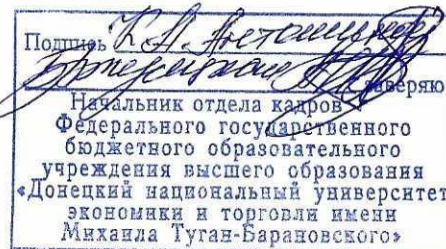 Подпись
заверяю
Начальник отдела кадров
Федерального государственного
бюджетного образовательного
учреждения высшего образования
«Донецкий национальный университет
экономики и торговли имени
Михаила Туган-Барановского»